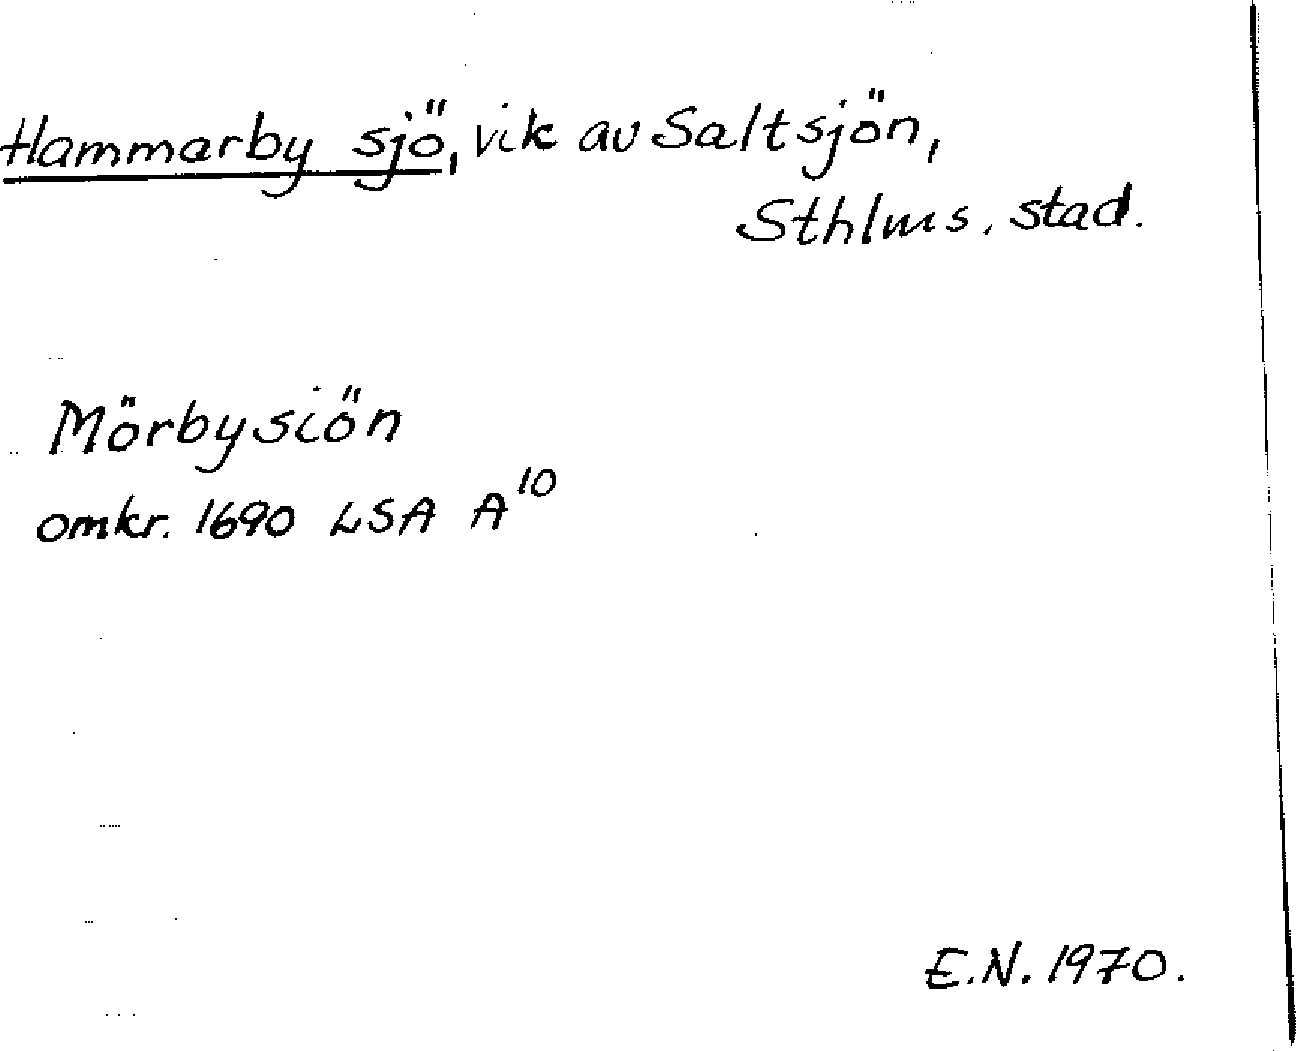 Hammarby sjö, vik av Saltsjön,
Sthlms. stad.
Mörbysiön
omkr. 1690 LSA A¹⁰
E.N. 1970.